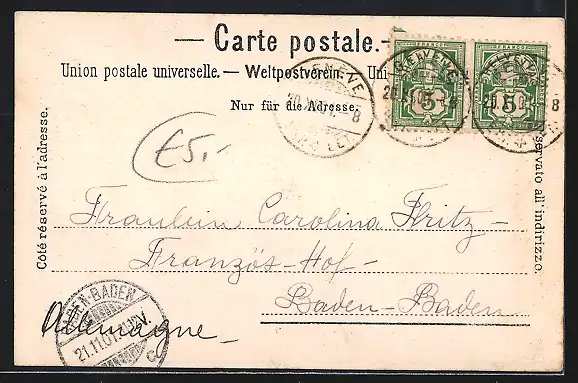 — Carte postale. —
Union postale universelle. — Weltpostverein. — Uni-
Nur für die Adresse.
Côté réservé à l'adresse.
servato all' indirizzo.
FRANCO FRANCO
5 5
GENÈVE
20.XI.01.-8
£5.-
Fräulein Carolina Fritz-
Französ-Hof-
Baden-Baden
Allemagne_
BADEN-BADEN
21.11.01
C